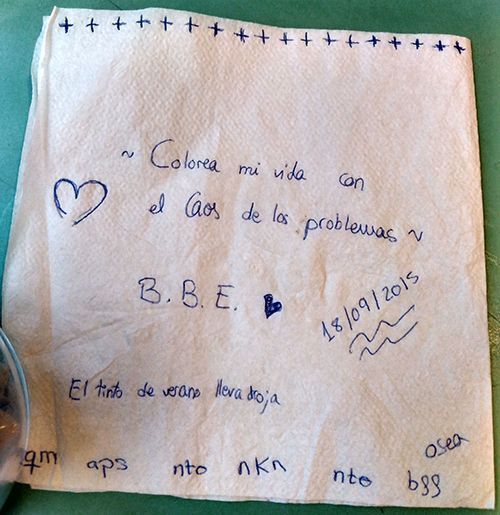 + + + + + + + + + + + + + + + + + +
~ Colorea mi vida con
el Caos de los problemas ~
B. B. E.
18/09/2015
El tinto de verano lleva droja
osea
qm aps nto nKn nto bgg